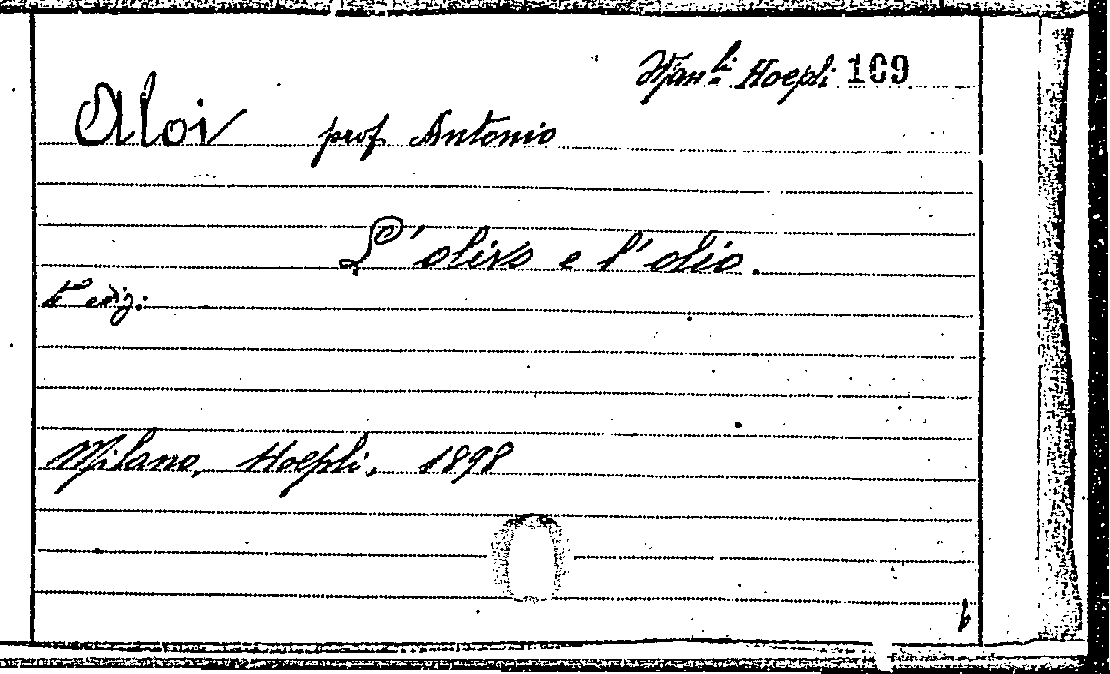 Man.li Hoepli 109
Aloi prof. Antonio
L'olivo e l'olio.
ediz:
Milano, Hoepli, 1898